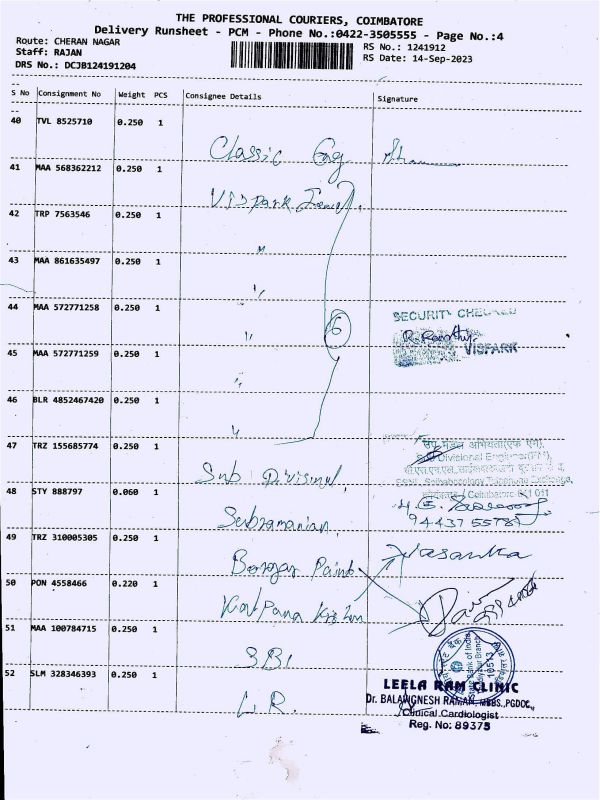 THE PROFESSIONAL COURIERS, COIMBATORE
Delivery Runsheet - PCM - Phone No.:0422-3505555 - Page No.:4
Route: CHERAN NAGAR
Staff: RAJAN
DRS No.: DCJB124191204
RS No.: 1241912
RS Date: 14-Sep-2023
S No Consignment No Weight PCS Consignee Details Signature
40 TVL 8525710 0.250 1
Classic Eng
41 MAA 568362212 0.250 1
Vispark
42 TRP 7563546 0.250 1
"
43 MAA 861635497 0.250 1
"
44 MAA 572771258 0.250 1
" 6
SECURITY CHECKED
VISPARK
45 MAA 572771259 0.250 1
"
46 BLR 4852467420 0.250 1
"
47 TRZ 155685774 0.250 1
उप मंडल अभियंता
Sub Divisional Engineer
Sub Divisional
Coimbatore 641 011
48 STY 888797 0.060 1
94437 55787
Subramanian
49 TRZ 310005305 0.250 1
Paint
50 PON 4558466 0.220 1
51 MAA 100784715 0.250 1
SBI
State Bank of India
10513
52 SLM 328346393 0.250 1
L.R.
LEELA RAM CLINIC
Dr. BALAVIGNESH RAMAN, MBBS.,PGDCC.,
Clinical Cardiologist
Reg. No: 89375